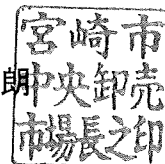 宮崎市
朗
中央卸売
市場長之印